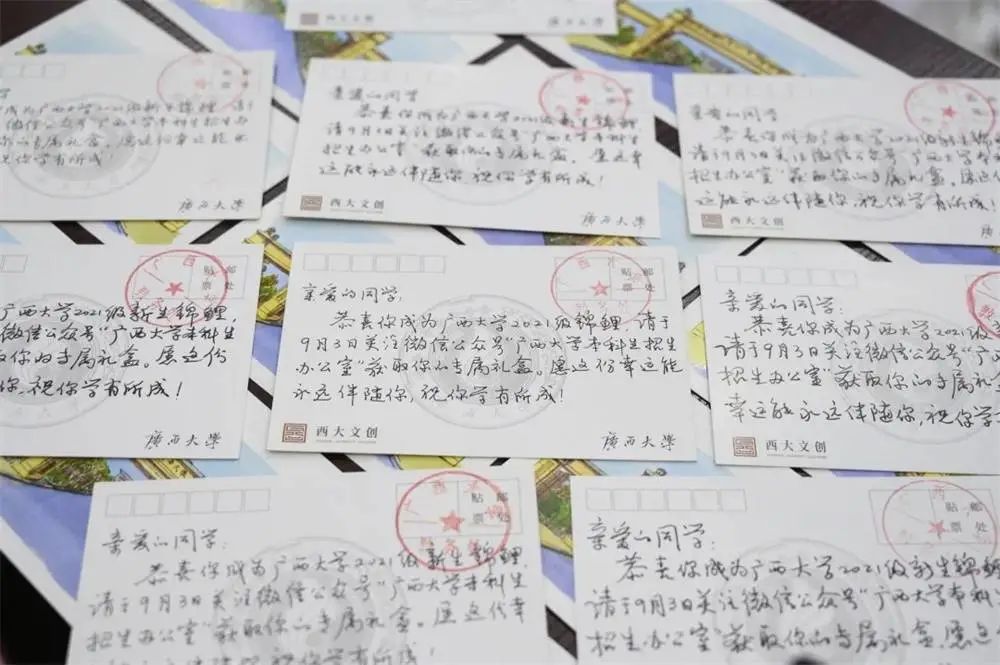 西大文创
学
成为广西大学2021级新生锦鲤 请
微信公众号"广西大学本科生招生办
你的专属礼盒。愿这份幸运能永
祝你学有所成!
廣西大學
亲爱的同学
恭喜你成为广西大学2021级新生锦鲤
请9月3日关注微信公众号"广西大学本科生
招生办公室"获取你的专属礼盒。愿这幸
运能永远伴随你,祝你学有所成!
西大文创
廣西大學
亲爱的同学:
恭喜你成为广西大学2021级新生锦
请9月3日关注微信公众号"广西大学本
招生办公室"获取你的专属礼盒。愿这
运能永远伴随你,祝你学有所成!
西大文创
贴邮
票处
广西大学2021级新生锦鲤,
微信公众号"广西大学本科生
取你的专属礼盒。愿这份
你,祝你学有所成!
廣西大學
贴邮
票处
亲爱的同学:
恭喜你成为广西大学2021级锦鲤,请于
9月3日关注微信公众号"广西大学本科生招生
办公室"获取你的专属礼盒。愿这份幸运能
永远伴随你,祝你学有所成!
西大文创
廣西大學
亲爱的同学:
恭喜你成为广西大学2021级
请于9月3日关注微信公众号"广
招生办公室"获取你的专属礼
幸运能永远伴随你,祝你学
西大文创
贴邮
票处
亲爱的同学:
恭喜你成为广西大学2021级新生锦鲤
请于9月3日关注微信公众号"广西大学本科生
招生办公室"获取你的专属礼盒。愿这份幸
运能永远伴随你,祝你学有所成!
贴邮
票处
亲爱的同学:
恭喜你成为广西大学2021级新生锦
请于9月3日关注微信公众号"广西大学本科
招生办公室"获取你的专属礼盒,愿这